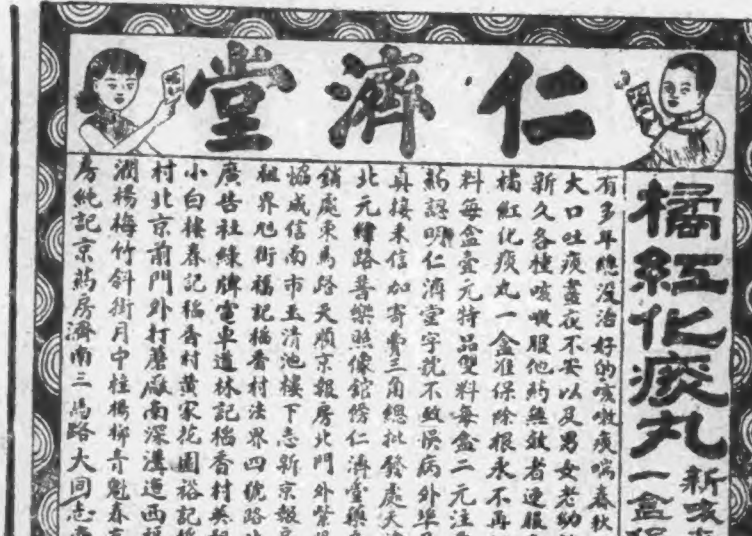 仁濟堂
橘紅化痰丸
新咳
一盒
有多年總没治好的咳嗽痰喘春秋
大口吐痰晝夜不安以及男女老幼
新久各種咳嗽服他药無效者速服
橘紅化痰丸一盒准保除根永不再
料每盒壹元特品雙料每盒二元注
药認明仁濟堂字號不致悞病外埠
真接来信加寄費三角總批發處天
北元緯路普樂照像館傍仁濟堂藥
銷處東馬路天順京報房北門外紫
恊成信南市玉清池樓下志新京報
租界旭街福記稻香村法界四號路
廣告社綠牌電車道林記稻香村英
小白樓春記稻香村黄家花園裕記
村北京前門外打磨廠南深溝迤西
潤楊梅竹斜街月中桂楊柳青魁春
房純記京药房濟南三馬路大同志